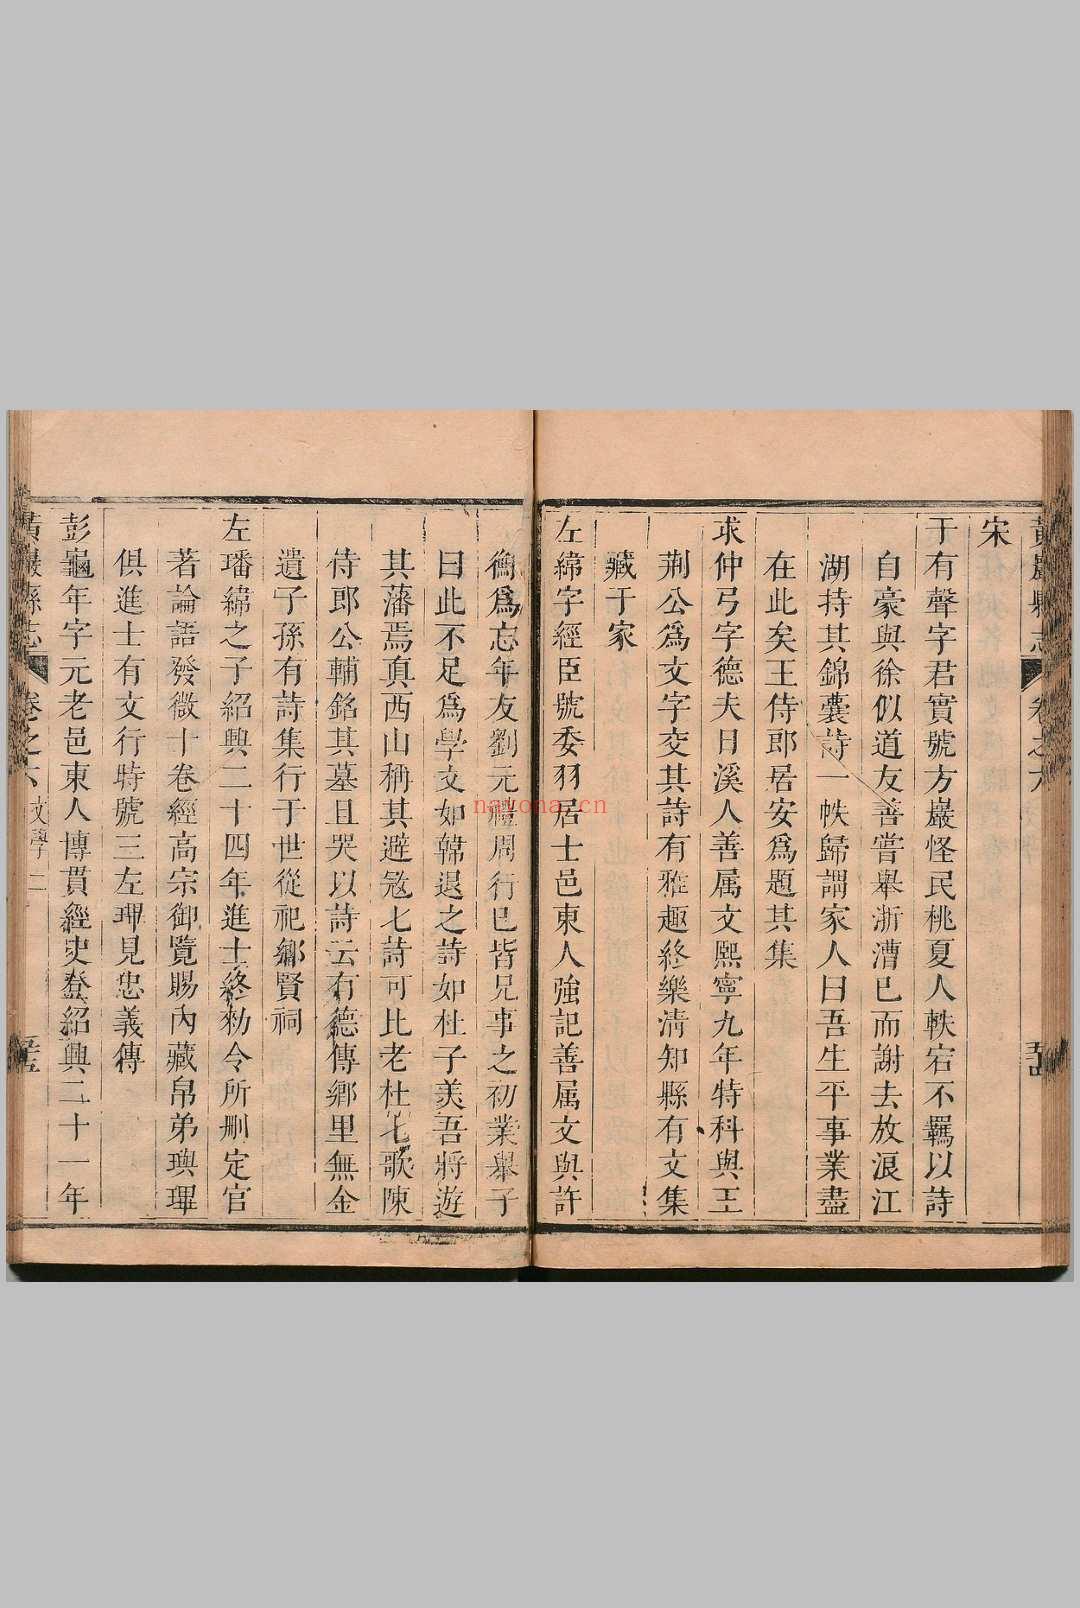 黃巖縣志 卷之六
宋
于有聲字君實號方巖怪民桃夏人軼宕不羈以詩
自豪與徐似道友善嘗舉浙漕已而謝去放浪江
湖持其錦囊詩一帙歸謂家人曰吾生平事業盡
在此矣王侍郎居安爲題其集
求仲弓字德夫日溪人善属文熙寧九年特科與王
荆公爲文字交其詩有雅趣終樂清知縣有文集
藏于家
左緯字經臣號委羽居士邑東人強記善属文與許
衡爲忘年友劉元禮周行已皆兄事之初業舉子
曰此不足爲學文如韓退之詩如杜子美吾將遊
其藩焉真西山稱其避冦七詩可比老杜七歌陳
侍郎公輔銘其墓且哭以詩云有德傳鄉里無金
遺子孫有詩集行于世從祀鄉賢祠
左璠緯之子紹興二十四年進士終勑令所刪定官
著論語發微十卷經高宗御覽賜內藏帛弟璵琿
俱進士有文行時號三左琿見忠義傳
彭龜年字元老邑東人博貫經史登紹興二十一年
黃巖縣志 卷之六 文學 二
nayona.cn